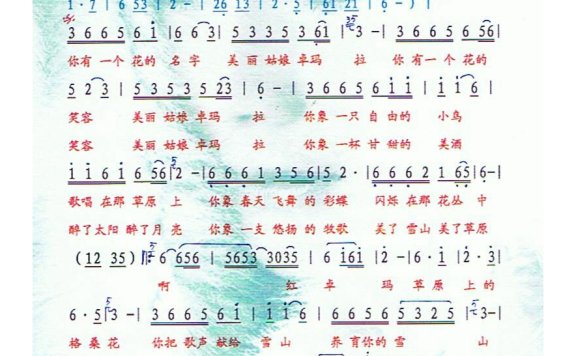 1·7 | 6 53 | 2 - | 26 13 | 2·5 | 61 21 | 6 - ) |
3 6 6 5 6 i | 6 6 3 | 5 3 3 5 3 61 | 3 - | 3 6 6 5 6 56 |
你有一个花的名字 美丽姑娘卓玛 拉 你有一个花的
5 2 3 | 5 3 3 5 23 | 6 - | 3 6 6 5 6 i i | i i 6 |
笑容 美丽姑娘卓玛 拉 你象一只自由的 小鸟
笑容 美丽姑娘卓玛 拉 你象一杯甘甜的 美酒
i i 6 i 6 56 | 2 - | 6 6 6 1 3 56 | 5 2 · | 6 6 6 2 1 65 | 6 - |
歌唱在那草原上 你象春天飞舞的彩蝶 闪烁在那花丛中
醉了太阳醉了月亮 你象一支悠扬的牧歌 美了雪山美了草原
(12 35) | 6 656 | 5653 3035 | 6 i6i | 2 - | 6 · i | 2 · 3 |
啊 红卓 玛草原上的
6 · 5 3 - | 6 6 6 5 6 i | i i 6 | 6 6 5 6 5 3 2 5 | 3 - |
格桑花 你把歌声献给雪山 养育你的雪 山